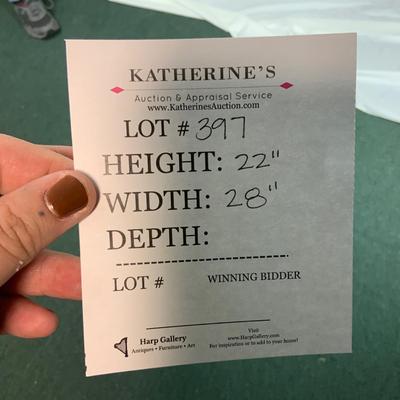 KATHERINE'S
Auction & Appraisal Service
www.KatherinesAuction.com
LOT # 397
HEIGHT: 22"
WIDTH: 28"
DEPTH:
LOT # WINNING BIDDER
Harp Gallery
Antiques • Furniture • Art
Visit
www.HarpGallery.com
For inspiration or to add to your home!